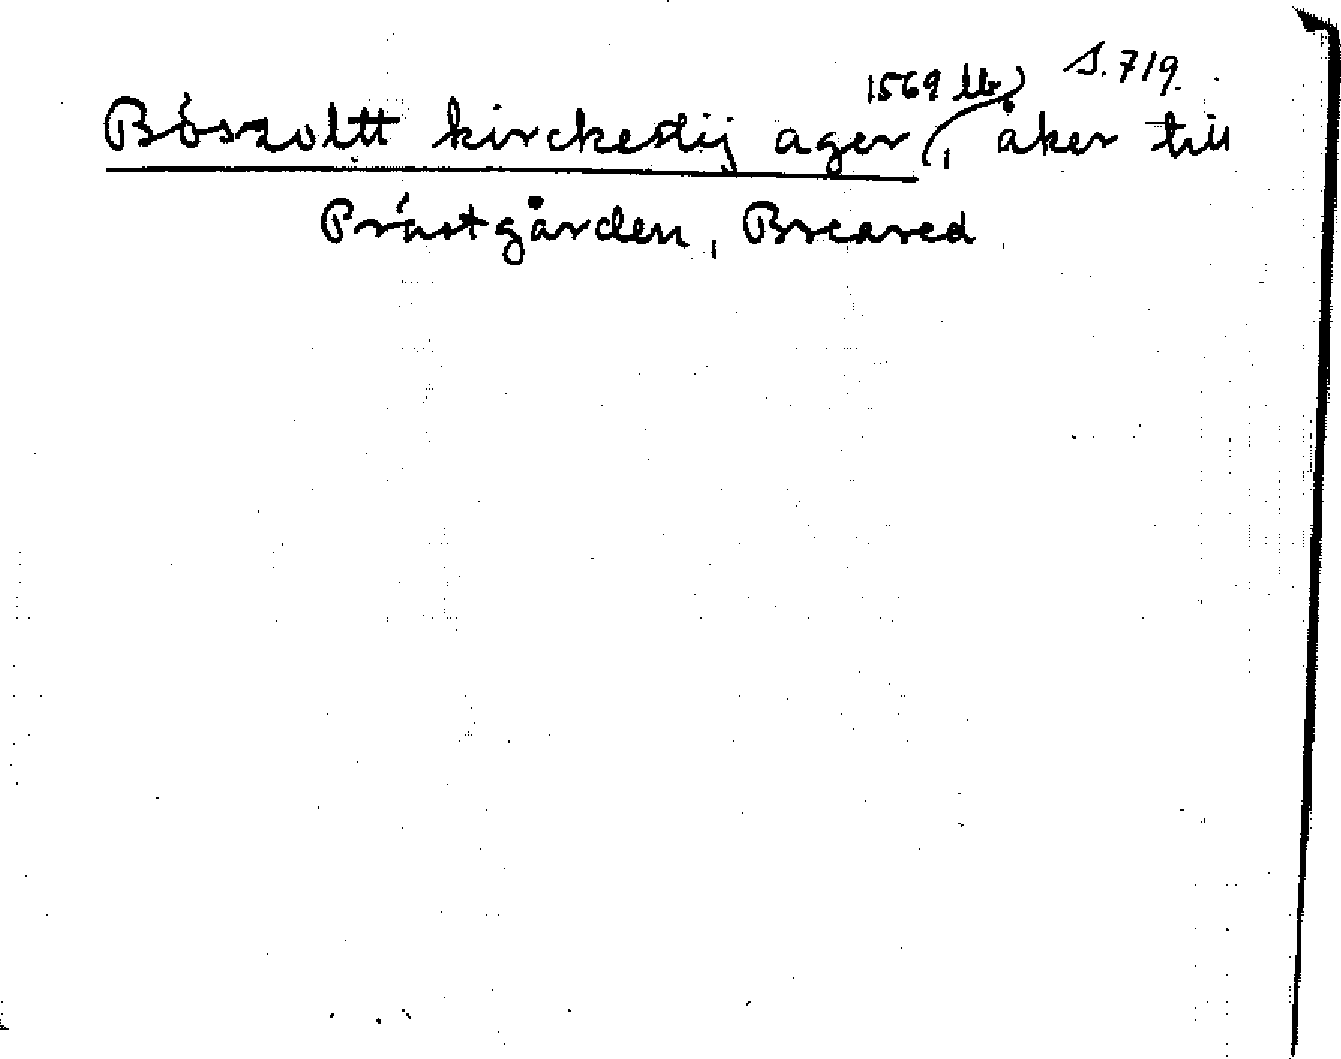 1569 lb) S. 719.
Bószoltt kirckestij ager (, åker till
Prästgården, Breared